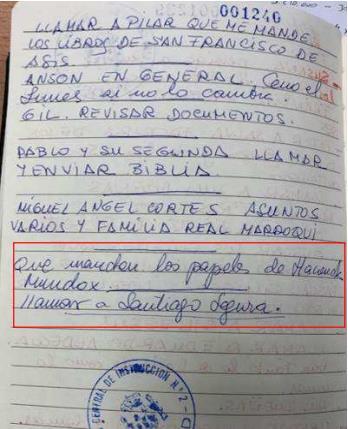 001240
LLAMAR A PILAR QUE ME MANDE
LOS LIBROS DE SAN FRANCISCO DE
ASIS.
ANSON EN GENERAL. Cena el
lunes si no lo cambia.
GIL. REVISAR DOCUMENTOS.
PABLO Y SU SEGUNDA LLAMAR
Y ENVIAR BIBLIA.
MIGUEL ANGEL CORTES ASUNTOS
VARIOS Y FAMILIA REAL MARROQUI
Que manden los papeles de Hacienda
Mundox.
llamar a Santiago Segura.
CENTRAL DE INSTRUCCION N.º 2